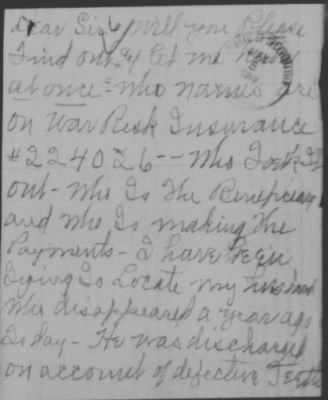 Dear Sir, Will you Please
Find out & let me know
at once - who names are
on War Risk Insurance
#224026 -- Who Took It
out - Who Is The Beneficiary
and Who Is making The
Payments - I have been
Trying To Locate my husband
Who disappeared a year ago
To day - He was discharged
on account of defective Teeth